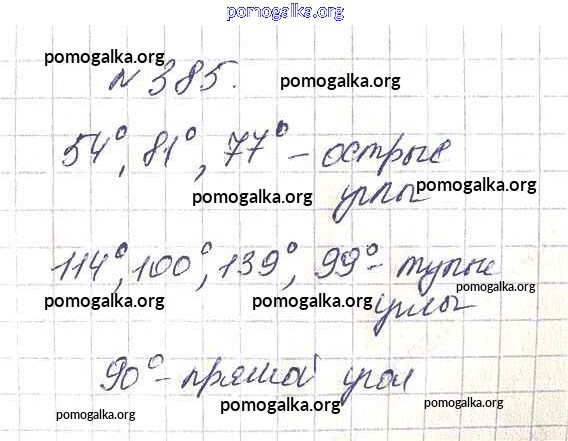 pomogalka.org
pomogalka.org
pomogalka.org
№ 385.
54°, 81°, 77° - острые
pomogalka.org pomogalka.org
углы
114°, 100°, 139°, 99° - тупые
pomogalka.org
pomogalka.org pomogalka.org
углы
90° - прямой угол
pomogalka.org pomogalka.org pomogalka.org